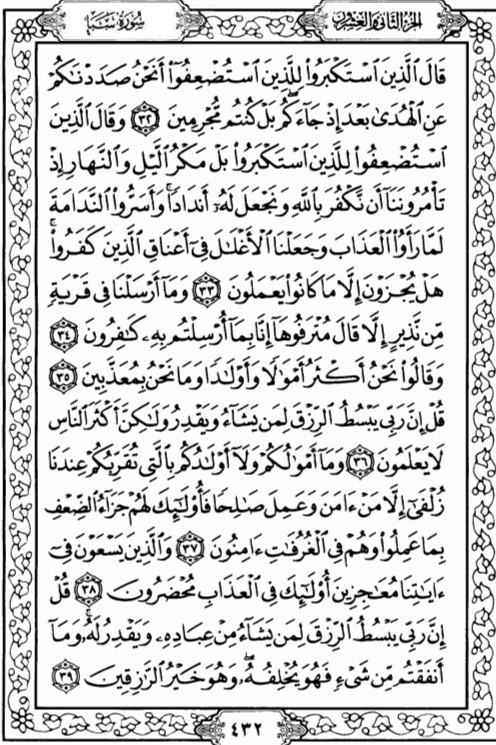 الجزء الثاني والعشرون
سورة سبإ
قَالَ ٱلَّذِينَ ٱسْتَكْبَرُوا۟ لِلَّذِينَ ٱسْتُضْعِفُوٓا۟ أَنَحْنُ صَدَدْنَٰكُمْ
عَنِ ٱلْهُدَىٰ بَعْدَ إِذْ جَآءَكُم بَلْ كُنتُم مُّجْرِمِينَ ٣٢ وَقَالَ ٱلَّذِينَ
ٱسْتُضْعِفُوا۟ لِلَّذِينَ ٱسْتَكْبَرُوا۟ بَلْ مَكْرُ ٱلَّيْلِ وَٱلنَّهَارِ إِذْ
تَأْمُرُونَنَآ أَن نَّكْفُرَ بِٱللَّهِ وَنَجْعَلَ لَهُۥٓ أَندَادًا ۚ وَأَسَرُّوا۟ ٱلنَّدَامَةَ
لَمَّا رَأَوُا۟ ٱلْعَذَابَ وَجَعَلْنَا ٱلْأَغْلَٰلَ فِىٓ أَعْنَاقِ ٱلَّذِينَ كَفَرُوا۟ ۚ
هَلْ يُجْزَوْنَ إِلَّا مَا كَانُوا۟ يَعْمَلُونَ ٣٣ وَمَآ أَرْسَلْنَا فِى قَرْيَةٍ
مِّن نَّذِيرٍ إِلَّا قَالَ مُتْرَفُوهَآ إِنَّا بِمَآ أُرْسِلْتُم بِهِۦ كَٰفِرُونَ ٣٤
وَقَالُوا۟ نَحْنُ أَكْثَرُ أَمْوَٰلًا وَأَوْلَٰدًا وَمَا نَحْنُ بِمُعَذَّبِينَ ٣٥
قُلْ إِنَّ رَبِّى يَبْسُطُ ٱلرِّزْقَ لِمَن يَشَآءُ وَيَقْدِرُ وَلَٰكِنَّ أَكْثَرَ ٱلنَّاسِ
لَا يَعْلَمُونَ ٣٦ وَمَآ أَمْوَٰلُكُمْ وَلَآ أَوْلَٰدُكُم بِٱلَّتِى تُقَرِّبُكُمْ عِندَنَا
زُلْفَىٰٓ إِلَّا مَنْ ءَامَنَ وَعَمِلَ صَٰلِحًا فَأُو۟لَٰٓئِكَ لَهُمْ جَزَآءُ ٱلضِّعْفِ
بِمَا عَمِلُوا۟ وَهُمْ فِى ٱلْغُرُفَٰتِ ءَامِنُونَ ٣٧ وَٱلَّذِينَ يَسْعَوْنَ فِىٓ
ءَايَٰتِنَا مُعَٰجِزِينَ أُو۟لَٰٓئِكَ فِى ٱلْعَذَابِ مُحْضَرُونَ ٣٨ قُلْ
إِنَّ رَبِّى يَبْسُطُ ٱلرِّزْقَ لِمَن يَشَآءُ مِنْ عِبَادِهِۦ وَيَقْدِرُ لَهُۥ ۚ وَمَآ
أَنفَقْتُم مِّن شَىْءٍ فَهُوَ يُخْلِفُهُۥ ۖ وَهُوَ خَيْرُ ٱلرَّٰزِقِينَ ٣٩
٤٣٢